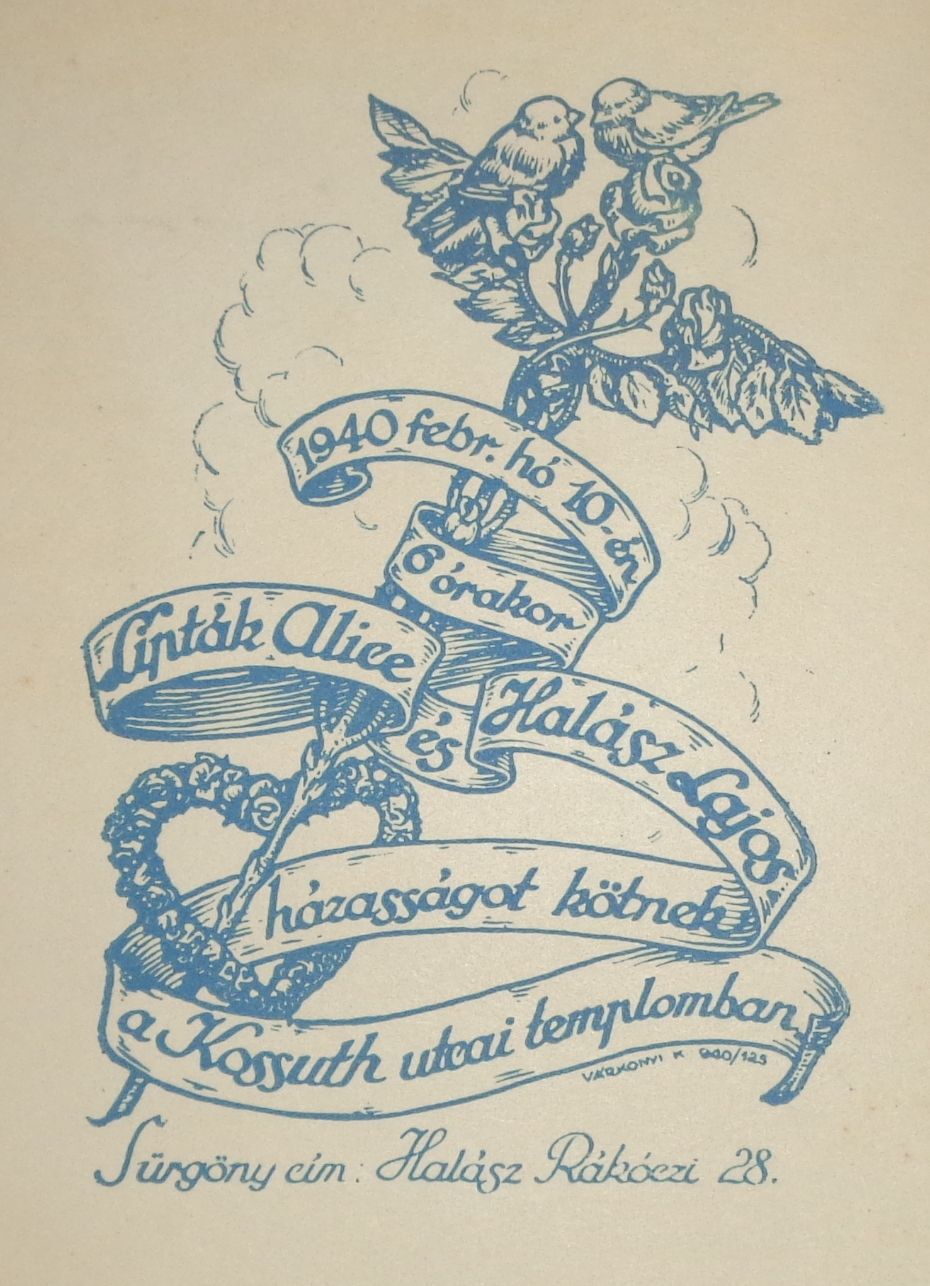 1940 febr. hó 10-én
6 órakor
Lipták Alice
és
Halász Lajos
házasságot kötnek
a Kossuth utcai templomban
VÁRKONYI K 940/123
Sürgöny cím: Halász Rákóczi 28.